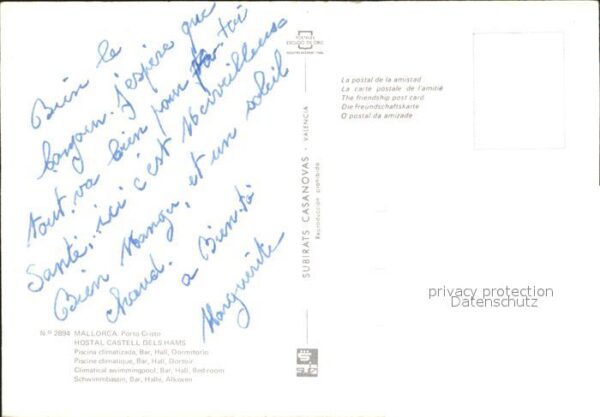 Bien le
bonjour. J'espère que
tout va bien pour toi
Santé, ici c'est Merveilleuse
Bien Manger, et un soleil
chaud.
a Bientôt
Marguerite
Nº 2894 MALLORCA. Porto Cristo
HOSTAL CASTELL DELS HAMS
Piscina climatizada, Bar, Hall, Dormitorio
Piscine climatique, Bar, Hall, Dortoir
Climatical swimmingpool, Bar, Hall, Bed-room
Schwimmbasin, Bar, Halle, Alkoven
SUBIRATS CASANOVAS - VALENCIA
Reproducción prohibida
POSTALES
ESCUDO DE ORO
La postal de la amistad
La carte postale de l'amitié
The friendship post card
Die Freundschaftskarte
O postal da amizade
privacy protection
Datenschutz